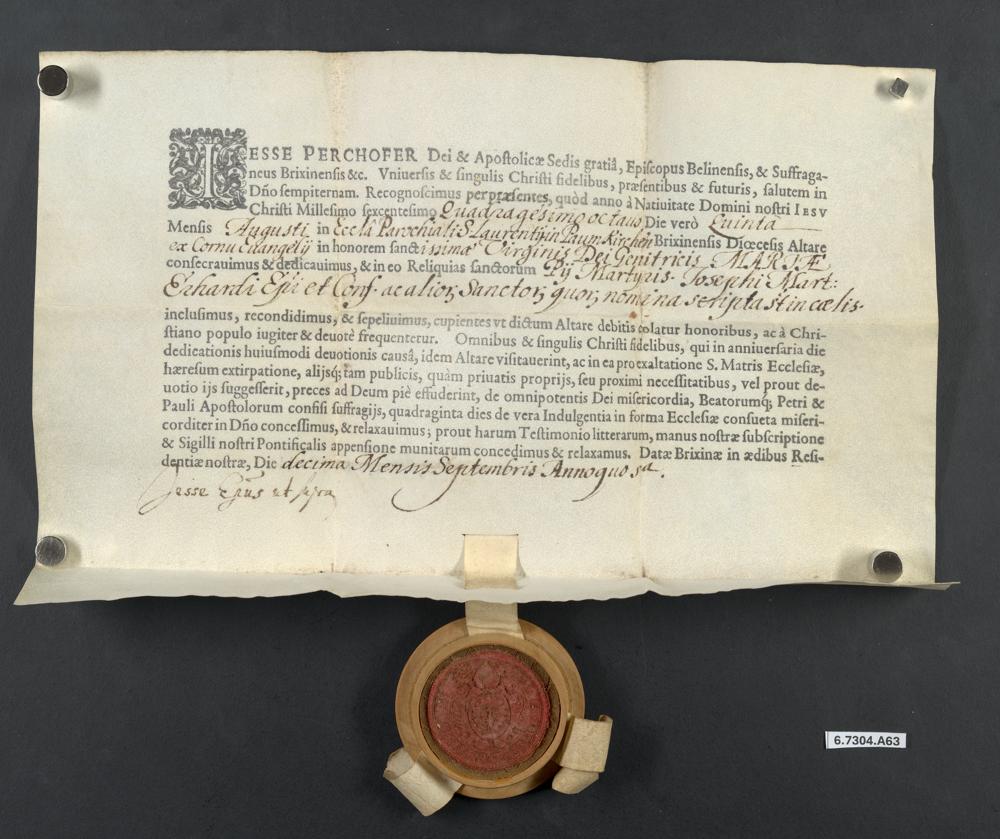 IESSE PERCHOFER Dei & Apostolicæ Sedis gratiâ, Episcopus Belinensis, & Suffraga-
neus Brixinensis &c. Vniuersis & singulis Christi fidelibus, præsentibus & futuris, salutem in
Dño sempiternam. Recognoscimus per præsentes, quòd anno à Natiuitate Domini nostri IESV
Christi Millesimo sexcentesimo Quadragesimo octauo Die verò Quinta
Mensis Augusti in Eccła Parochiali S. Laurentij in Paumkirchen Brixinensis Diœcesis Altare
ex Cornu Euangelij in honorem sanctissimæ Virginis Dei Genitricis MARIÆ
consecrauimus & dedicauimus, & in eo Reliquias sanctorum Pij Martyris. Josephi Mart:
Erhardi Epi et Conf. ac alior; Sanctor; quor; nomina scripta st in cælis
inclusimus, recondidimus, & sepeliuimus, cupientes vt dictum Altare debitis colatur honoribus, ac à Chri-
stiano populo iugiter & deuotè frequentetur. Omnibus & singulis Christi fidelibus, qui in anniuersaria die
dedicationis huiusmodi deuotionis causâ, idem Altare visitauerint, ac in ea pro exaltatione S. Matris Ecclesiæ,
hæresum extirpatione, alijsq; tam publicis, quàm priuatis proprijs, seu proximi necessitatibus, vel prout de-
uotio ijs suggesserit, preces ad Deum piè effuderint, de omnipotentis Dei misericordia, Beatorumq; Petri &
Pauli Apostolorum confisi suffragijs, quadraginta dies de vera Indulgentia in forma Ecclesiæ consueta miseri-
corditer in Dño concessimus, & relaxauimus; prout harum Testimonio litterarum, manus nostræ subscriptione
& Sigilli nostri Pontificalis appensione munitarum concedimus & relaxamus. Datæ Brixinæ in ædibus Resi-
dentiæ nostræ, Die decima Mensis Septembris Anno quo sa.
Jesse Epus ut supra
6.7304.A63